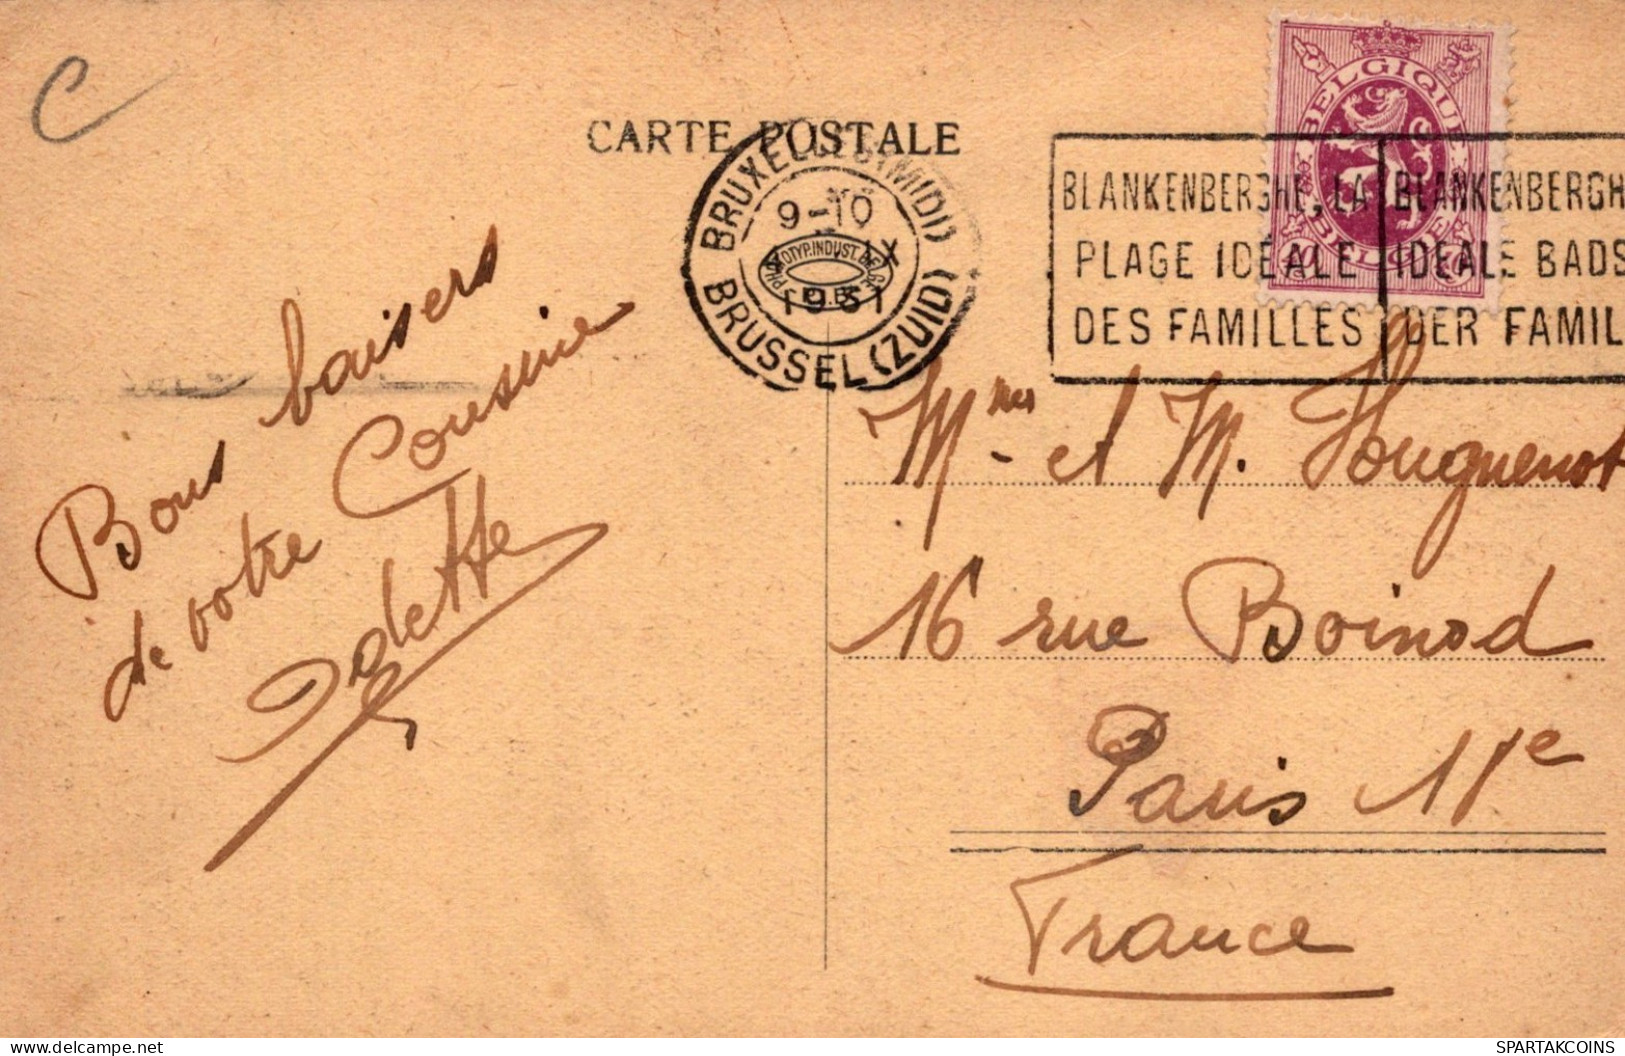 C
CARTE POSTALE
BRUXELLES (MIDI)
9-10
IX
1931
BRUSSEL (ZUID)
PHOTOTYP. INDUST. BELGE
BELGIQUE
BELGIE
40 40
BLANKENBERGHE, LA
PLAGE IDÉALE
DES FAMILLES
BLANKENBERGH
IDEALE BADS
DER FAMIL
Bons baisers
de votre Cousine
Odette
et M. Houguenot
16 rue Boinod
Paris 18e
France
delcampe.net
SPARTAKCOINS